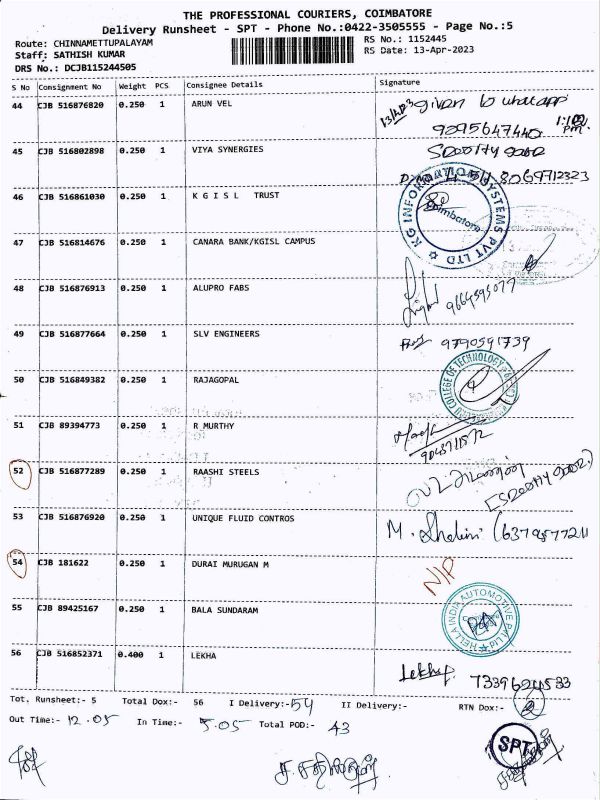 THE PROFESSIONAL COURIERS, COIMBATORE
Delivery Runsheet - SPT - Phone No.:0422-3505555 - Page No.:5
Route: CHINNAMETTUPALAYAM
RS No.: 1152445
Staff: SATHISH KUMAR
RS Date: 13-Apr-2023
DRS No.: DCJB115244505
S No Consignment No Weight PCS Consignee Details Signature
44 CJB 516876820 0.250 1 ARUN VEL given to whatapp
9095647440 1:10 pm
45 CJB 516802898 0.250 1 VIYA SYNERGIES
8069712323
46 CJB 516861030 0.250 1 K G I S L TRUST
KG INFORMATION SYSTEMS PVT LTD Coimbatore
47 CJB 516814676 0.250 1 CANARA BANK/KGISL CAMPUS
48 CJB 516876913 0.250 1 ALUPRO FABS
49 CJB 516877664 0.250 1 SLV ENGINEERS 9790591739
50 CJB 516849382 0.250 1 RAJAGOPAL
COLLEGE OF TECHNOLOGY
51 CJB 89394773 0.250 1 R MURTHY
52 CJB 516877289 0.250 1 RAASHI STEELS
53 CJB 516876920 0.250 1 UNIQUE FLUID CONTROS M. Shalini
54 CJB 181622 0.250 1 DURAI MURUGAN M N/P
55 CJB 89425167 0.250 1 BALA SUNDARAM
HELLA INDIA AUTOMOTIVE PVT Ltd
56 CJB 516852371 0.400 1 LEKHA Lekha
Tot. Runsheet:- 5 Total Dox:- 56 I Delivery:- 54 II Delivery:- RTN Dox:- 2
Out Time:- 12.05 In Time:- 5.05 Total POD:- 43
SPT